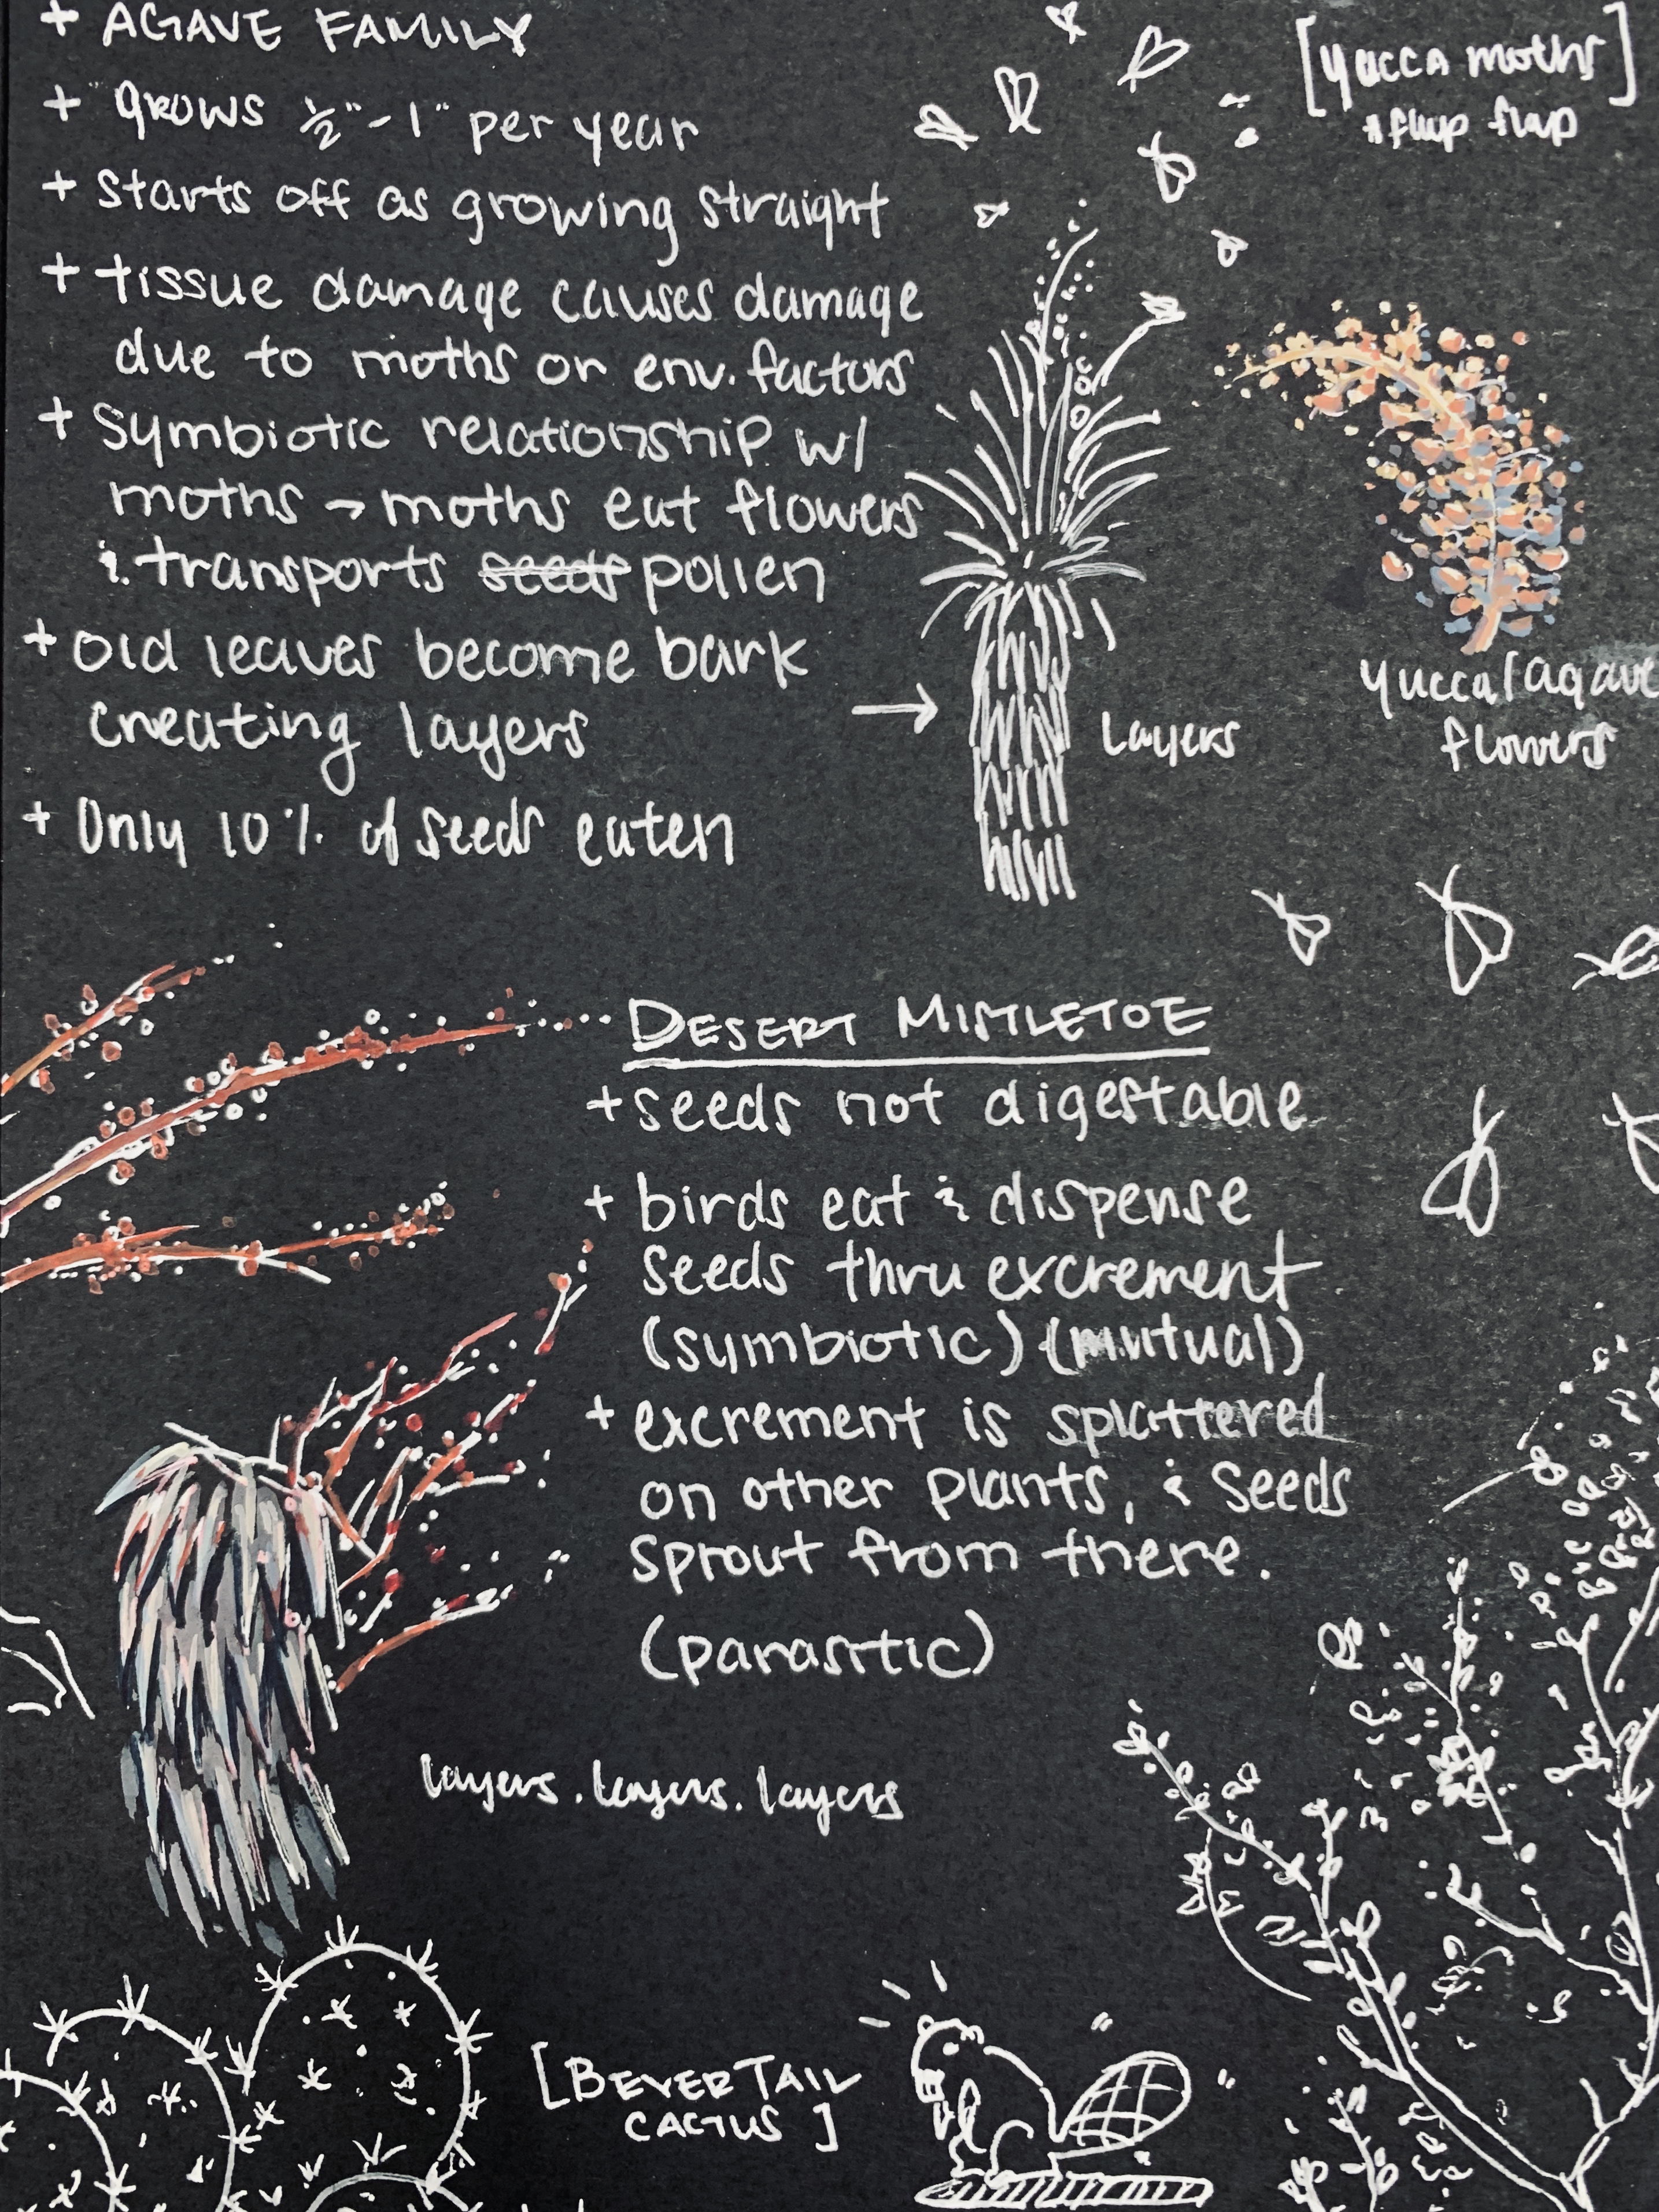 + AGAVE FAMILY
+ "grows ½" - 1" per year
+ starts off as growing straight
+ tissue damage causes damage
due to moths or env. factors
+ symbiotic relationship w/
moths → moths eat flowers
& transports seeds pollen
+ old leaves become bark
creating layers
+ Only 10% of seeds eaten
[yucca moths]
*flap flap
→ Layers
yucca/agave
flowers
DESERT MISTLETOE
+ seeds not digestable
+ birds eat & dispense
seeds thru excrement
(symbiotic) (mutual)
+ excrement is splattered
on other plants, & seeds
sprout from there.
(parasitic)
layers. layers. layers
[BEVERTAIL
CACTUS]